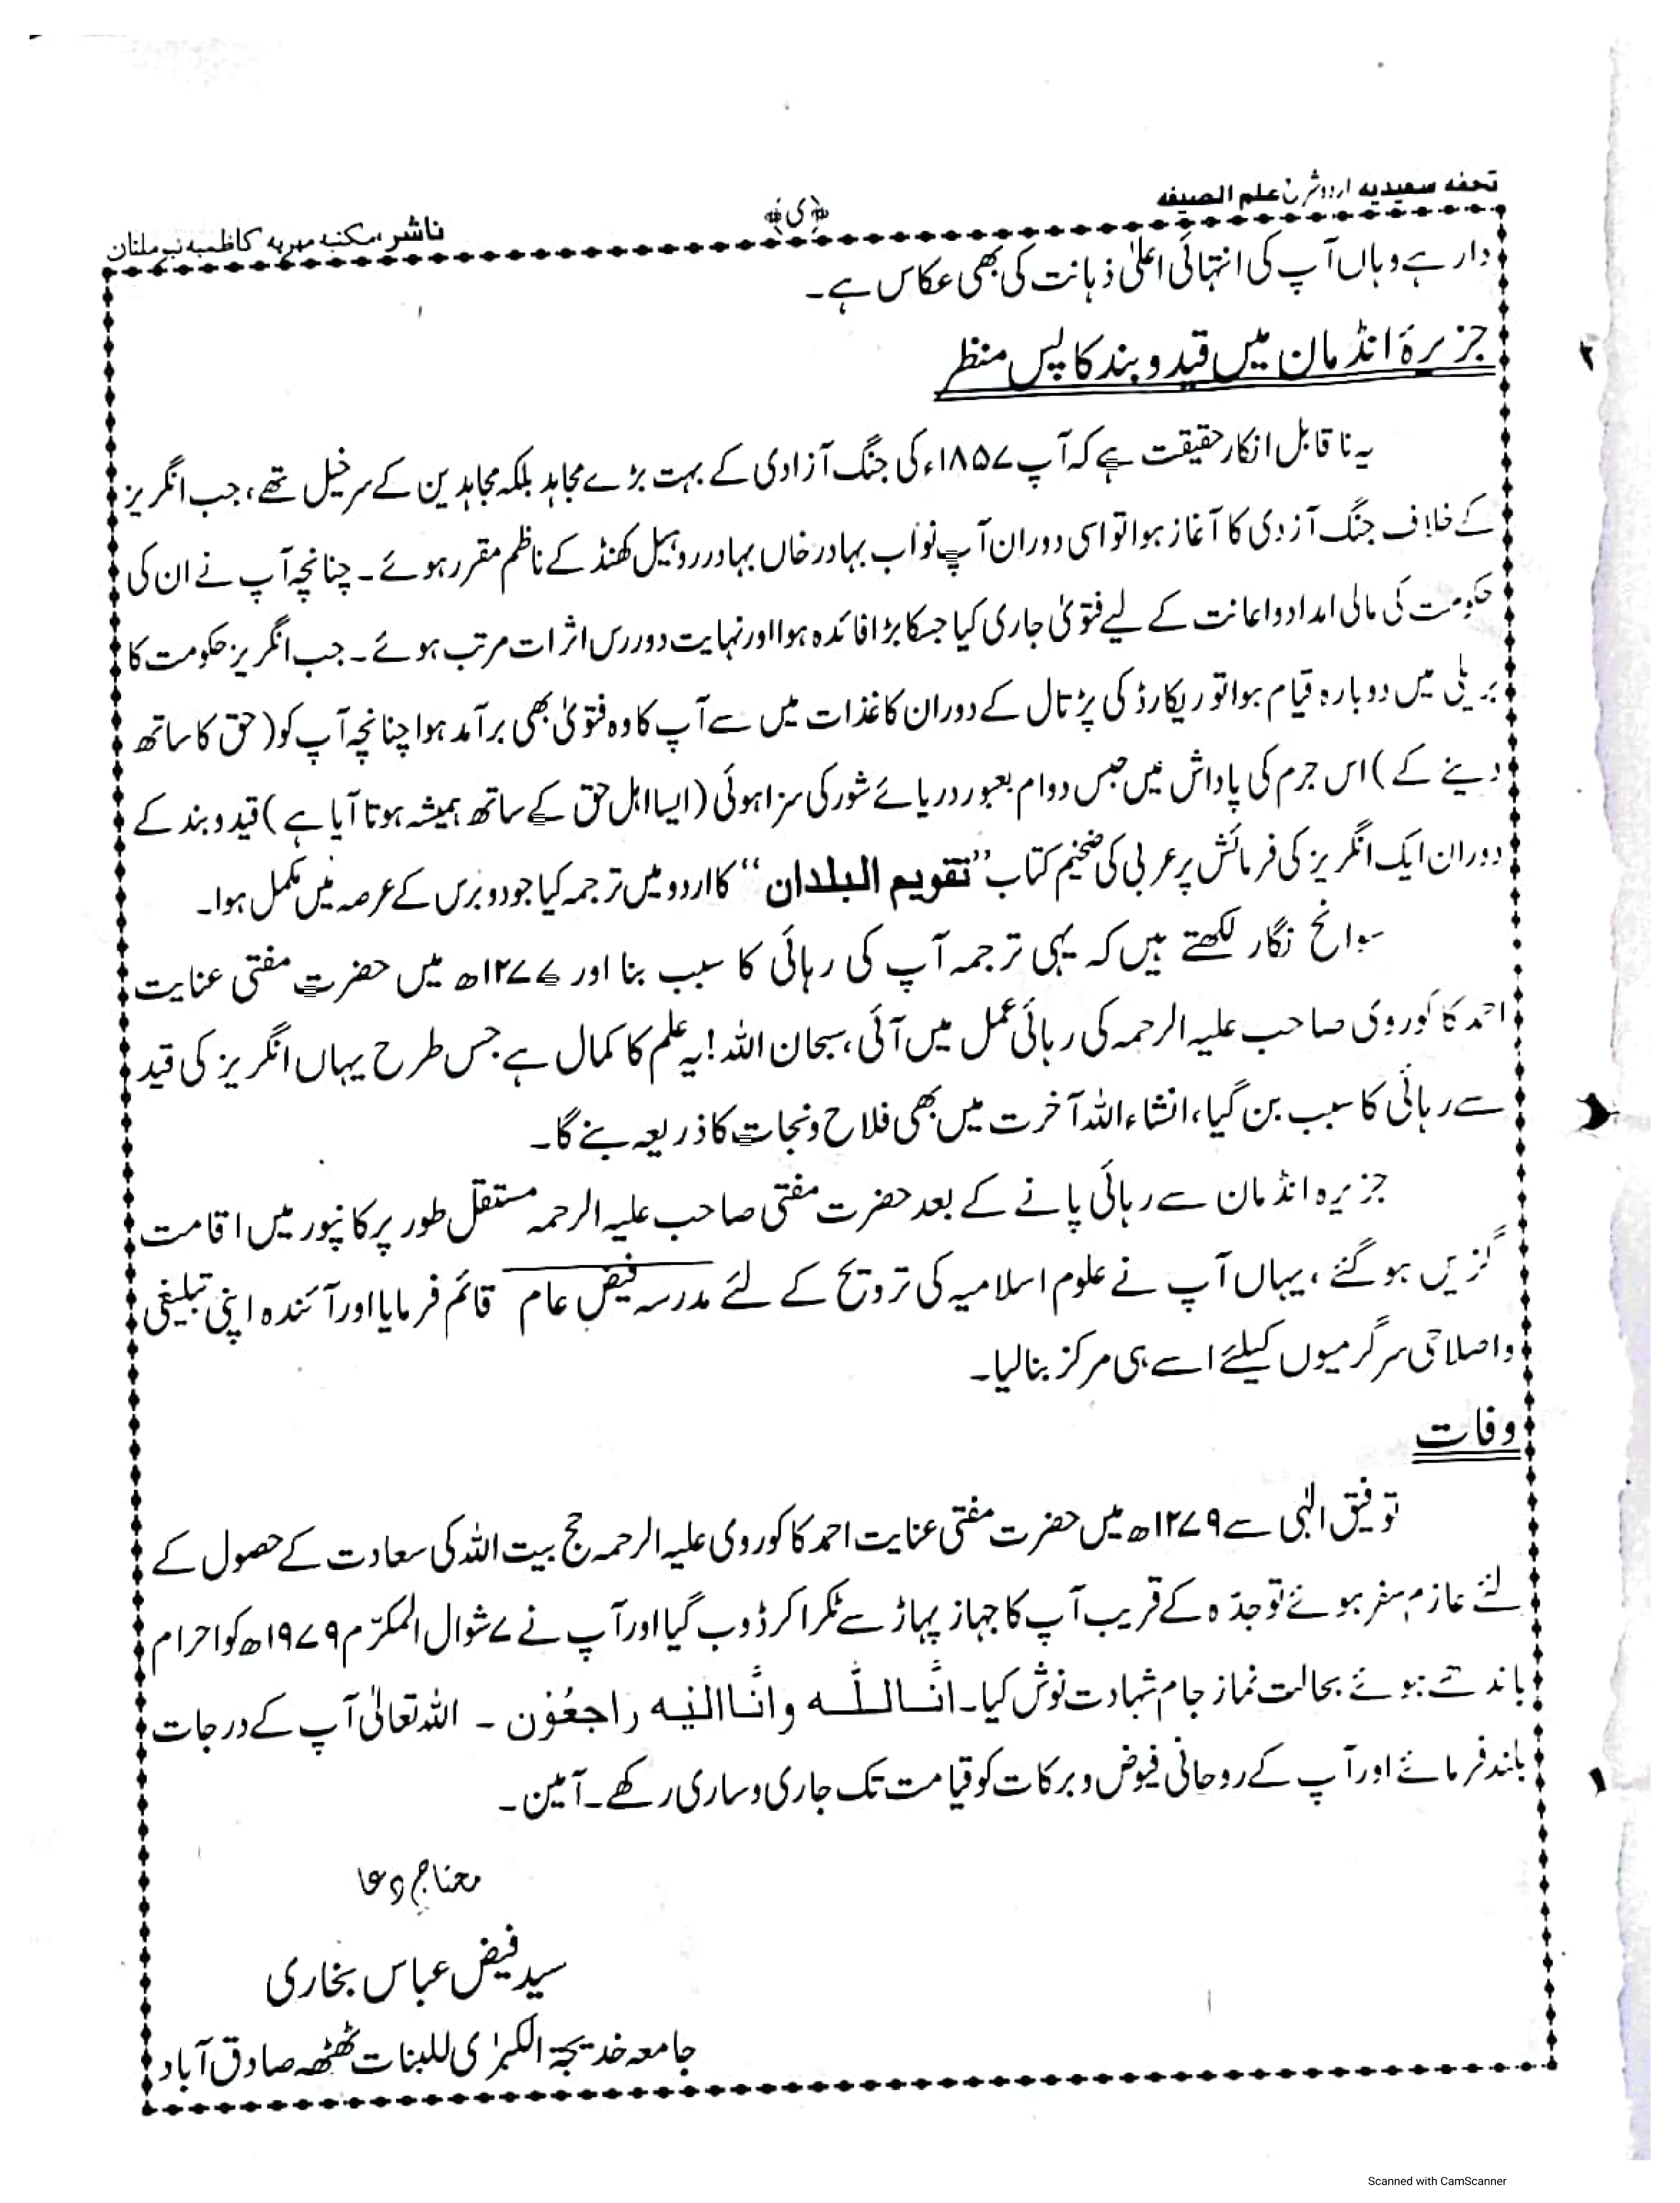 تحفه سعیدیه اردو شرح علم الصیغه
﴿ی﴾
ناشر مکتبه مهریه کاظمیه نیو ملتان
دار ہے وہاں آپ کی انتہائی اعلیٰ ذہانت کی بھی عکاس ہے۔
جزیرۂ انڈمان میں قید و بند کا پس منظر
یہ نا قابل انکار حقیقت ہے کہ آپ ۱۸۵۷ء کی جنگ آزادی کے بہت بڑے مجاہد بلکہ مجاہدین کے سرخیل تھے، جب انگریز
کے خلاف جنگ آزدی کا آغاز ہوا تو اسی دوران آپ نواب بہادر خاں بہادر روہیل کھنڈ کے ناظم مقرر ہوئے۔ چنانچہ آپ نے ان کی
حکومت کی مالی امداد و اعانت کے لیے فتویٰ جاری کیا جسکا بڑا فائدہ ہوا اور نہایت دور رس اثرات مرتب ہوئے۔ جب انگریز حکومت کا
بریلی میں دوبارہ قیام ہوا تو ریکارڈ کی پڑتال کے دوران کاغذات میں سے آپ کا وہ فتویٰ بھی برآمد ہوا چنانچہ آپ کو (حق کا ساتھ
دینے کے) اس جرم کی پاداش میں حبس دوام بعبور دریائے شور کی سزا ہوئی (ایسا اہل حق کے ساتھ ہمیشہ ہوتا آیا ہے) قید و بند کے
دوران ایک انگریز کی فرمائش پر عربی کی ضخیم کتاب ”تقویم البلدان“ کا اردو میں ترجمہ کیا جو دو برس کے عرصہ میں مکمل ہوا۔
سوانح نگار لکھتے ہیں کہ یہی ترجمہ آپ کی رہائی کا سبب بنا اور ۱۲۷۷ھ میں حضرت مفتی عنایت
احمد کاکوروی صاحب علیہ الرحمہ کی رہائی عمل میں آئی، سبحان اللہ! یہ علم کا کمال ہے جس طرح یہاں انگریز کی قید
سے رہائی کا سبب بن گیا، انشاء اللہ آخرت میں بھی فلاح ونجات کا ذریعہ بنے گا۔
جزیرہ انڈمان سے رہائی پانے کے بعد حضرت مفتی صاحب علیہ الرحمہ مستقل طور پر کانپور میں اقامت
گزیں ہو گئے، یہاں آپ نے علوم اسلامیہ کی ترویج کے لئے مدرسہ فیض عام قائم فرمایا اور آئندہ اپنی تبلیغی
و اصلاحی سرگرمیوں کیلئے اسے ہی مرکز بنالیا۔
وفات
توفیق الٰہی سے ۱۲۷۹ھ میں حضرت مفتی عنایت احمد کاکوروی علیہ الرحمہ حج بیت اللہ کی سعادت کے حصول کے
لئے عازم سفر ہوئے تو جدّہ کے قریب آپ کا جہاز پہاڑ سے ٹکرا کر ڈوب گیا اور آپ نے ۷ شوال المکرّم ۱۹۷۹ھ کو احرام
باندھے ہوئے بحالت نماز جام شہادت نوش کیا۔ انَّا للّٰه وانَّا الیْه راجعُوْن ۔ اللہ تعالٰی آپ کے درجات
بلند فرمائے اور آپ کے روحانی فیوض و برکات کو قیامت تک جاری و ساری رکھے۔ آمین۔
محتاج دعا
سید فیض عباس بخاری
جامعہ خدیجۃ الکبرٰی للبنات ٹھٹھہ صادق آباد
Scanned with CamScanner